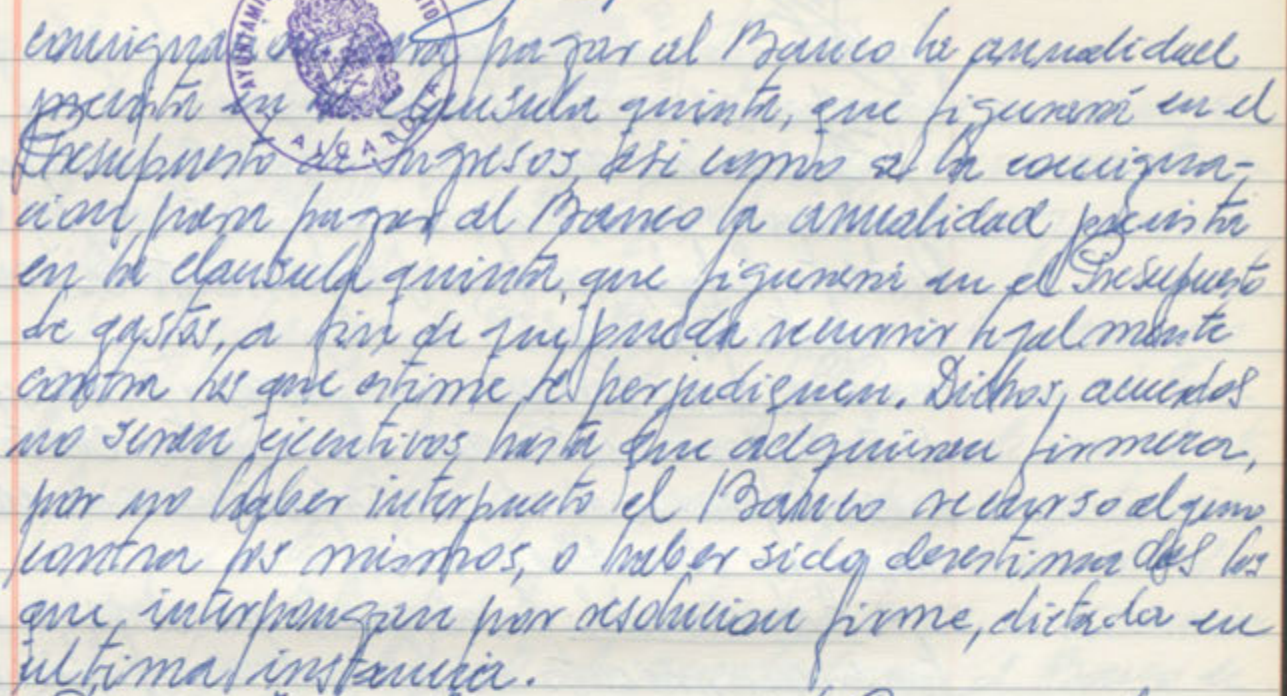 AYUNTAMI
ALCALDIA
consignación para pagar al Banco la anualidad
prevista en la clausula quinta, que figurará en el
Presupuesto de ingresos, asi como de la consigna-
cion para pagar al Banco la anualidad prevista
en la clausula quinta, que figurará en el Presupuesto
de gastos, a fin de que pueda recurrir legalmente
contra los que estime le perjudiquen. Dichos acuerdos
no seran ejecutivos hasta que adquieran firmeza,
por no haber interpuesto el Banco recurso alguno
contra los mismos, o haber sido desestimados los
que interpongan por resolucion firme, dictada en
ultima instancia.